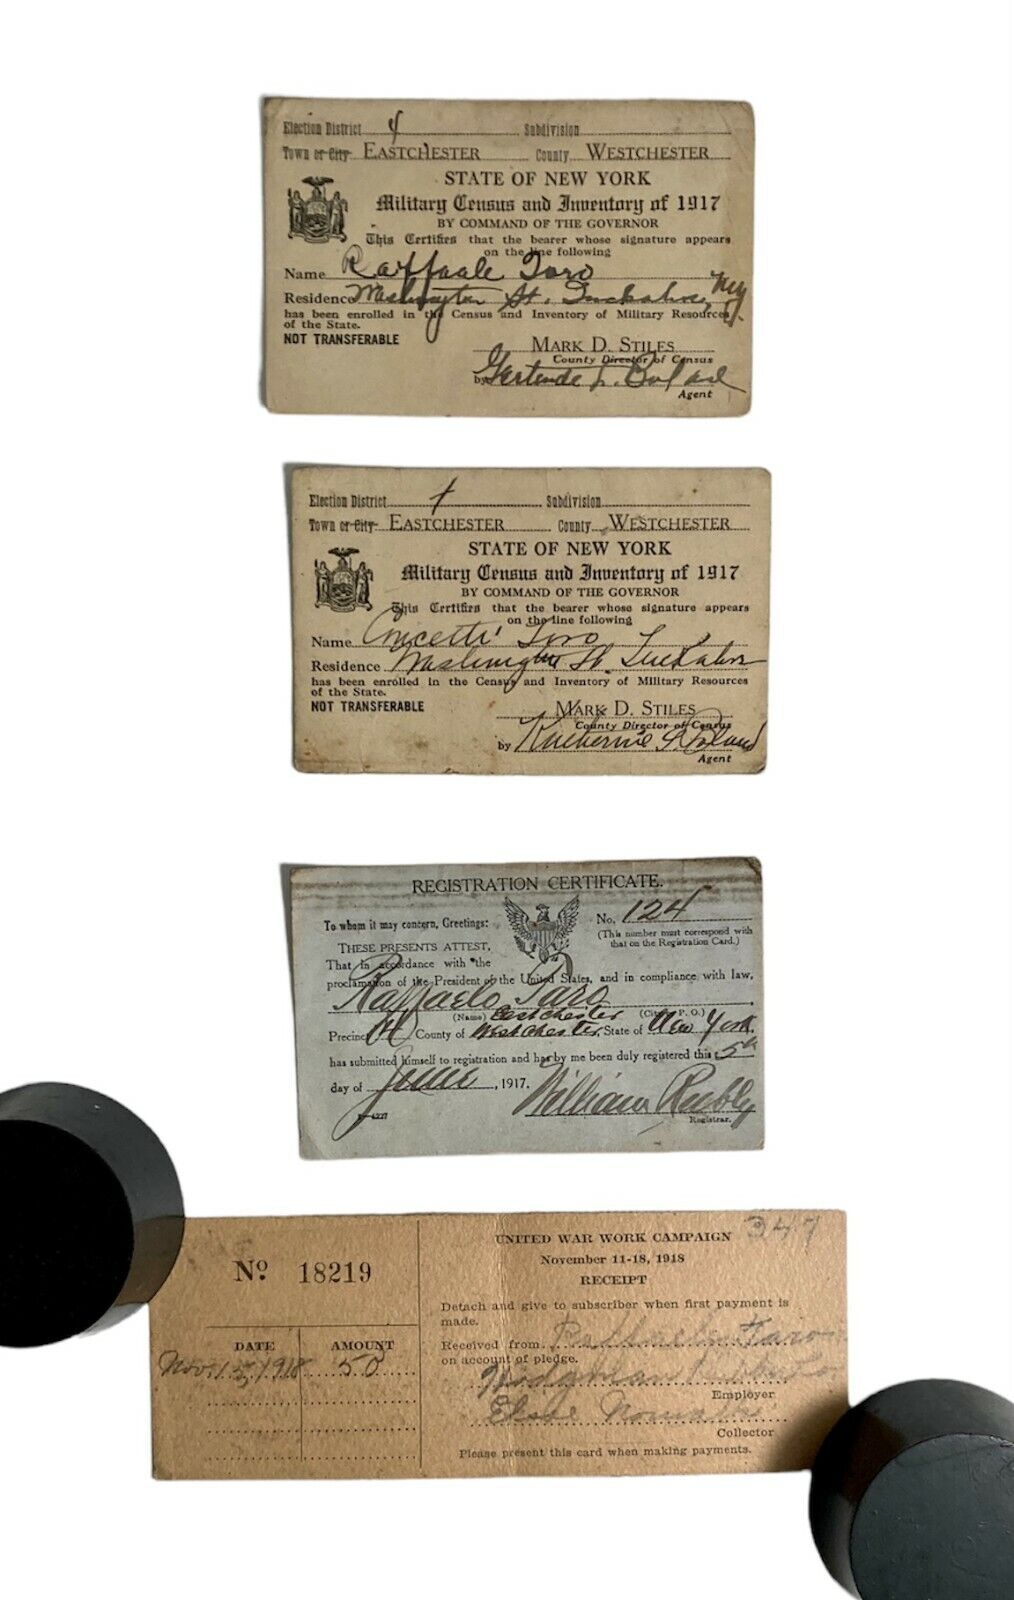 Election District 4 Subdivision
Town or City EASTCHESTER County WESTCHESTER
STATE OF NEW YORK
Military Census and Inventory of 1917
BY COMMAND OF THE GOVERNOR
This Certifies that the bearer whose signature appears
on the line following
Name Raffaele Toro
Residence Washington St. Tuckahoe, N.Y.
has been enrolled in the Census and Inventory of Military Resources
of the State.
NOT TRANSFERABLE
MARK D. STILES
County Director of Census
by Gertrude L.
Agent
Election District 4 Subdivision
Town or City EASTCHESTER County WESTCHESTER
STATE OF NEW YORK
Military Census and Inventory of 1917
BY COMMAND OF THE GOVERNOR
This Certifies that the bearer whose signature appears
on the line following
Name Toro
Residence Washington St. Tuckahoe
has been enrolled in the Census and Inventory of Military Resources
of the State.
NOT TRANSFERABLE
MARK D. STILES
County Director of Census
by Katherine Boland
Agent
REGISTRATION CERTIFICATE.
To whom it may concern, Greetings:
No. 124
(This number must correspond with
that on the Registration Card.)
THESE PRESENTS ATTEST,
That in accordance with the
proclamation of the President of the United States, and in compliance with law,
Raffaelo Taro
(Name) (City or P. O.)
Eastchester
Precinct County of Westchester, State of New York
has submitted himself to registration and has by me been duly registered this 5th
day of June, 1917.
William
Registrar.
UNITED WAR WORK CAMPAIGN 347
November 11-18, 1918
RECEIPT
No 18219
Detach and give to subscriber when first payment is
made.
Received from Taro
on account of pledge.
Employer
Elsie
Collector
Please present this card when making payments.
DATE AMOUNT
Nov. 15, 1918 50